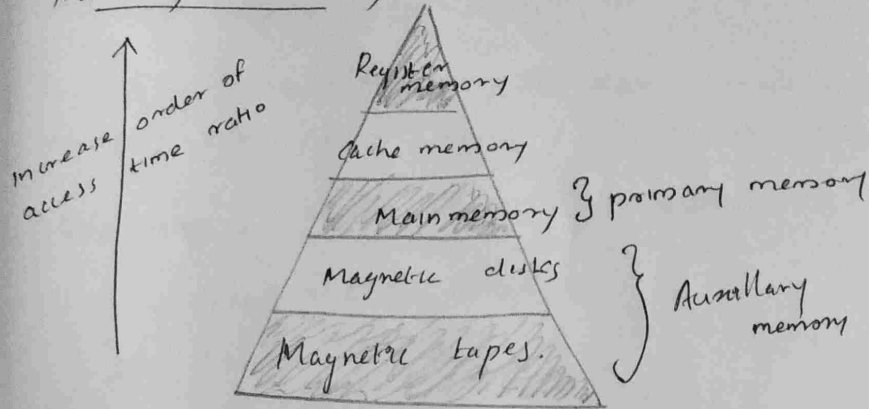 Increase order of
access time ratio
Register
memory
Cache memory
Main memory } primary memory
Magnetic disks
Magnetic tapes.
} Auxillary
memory